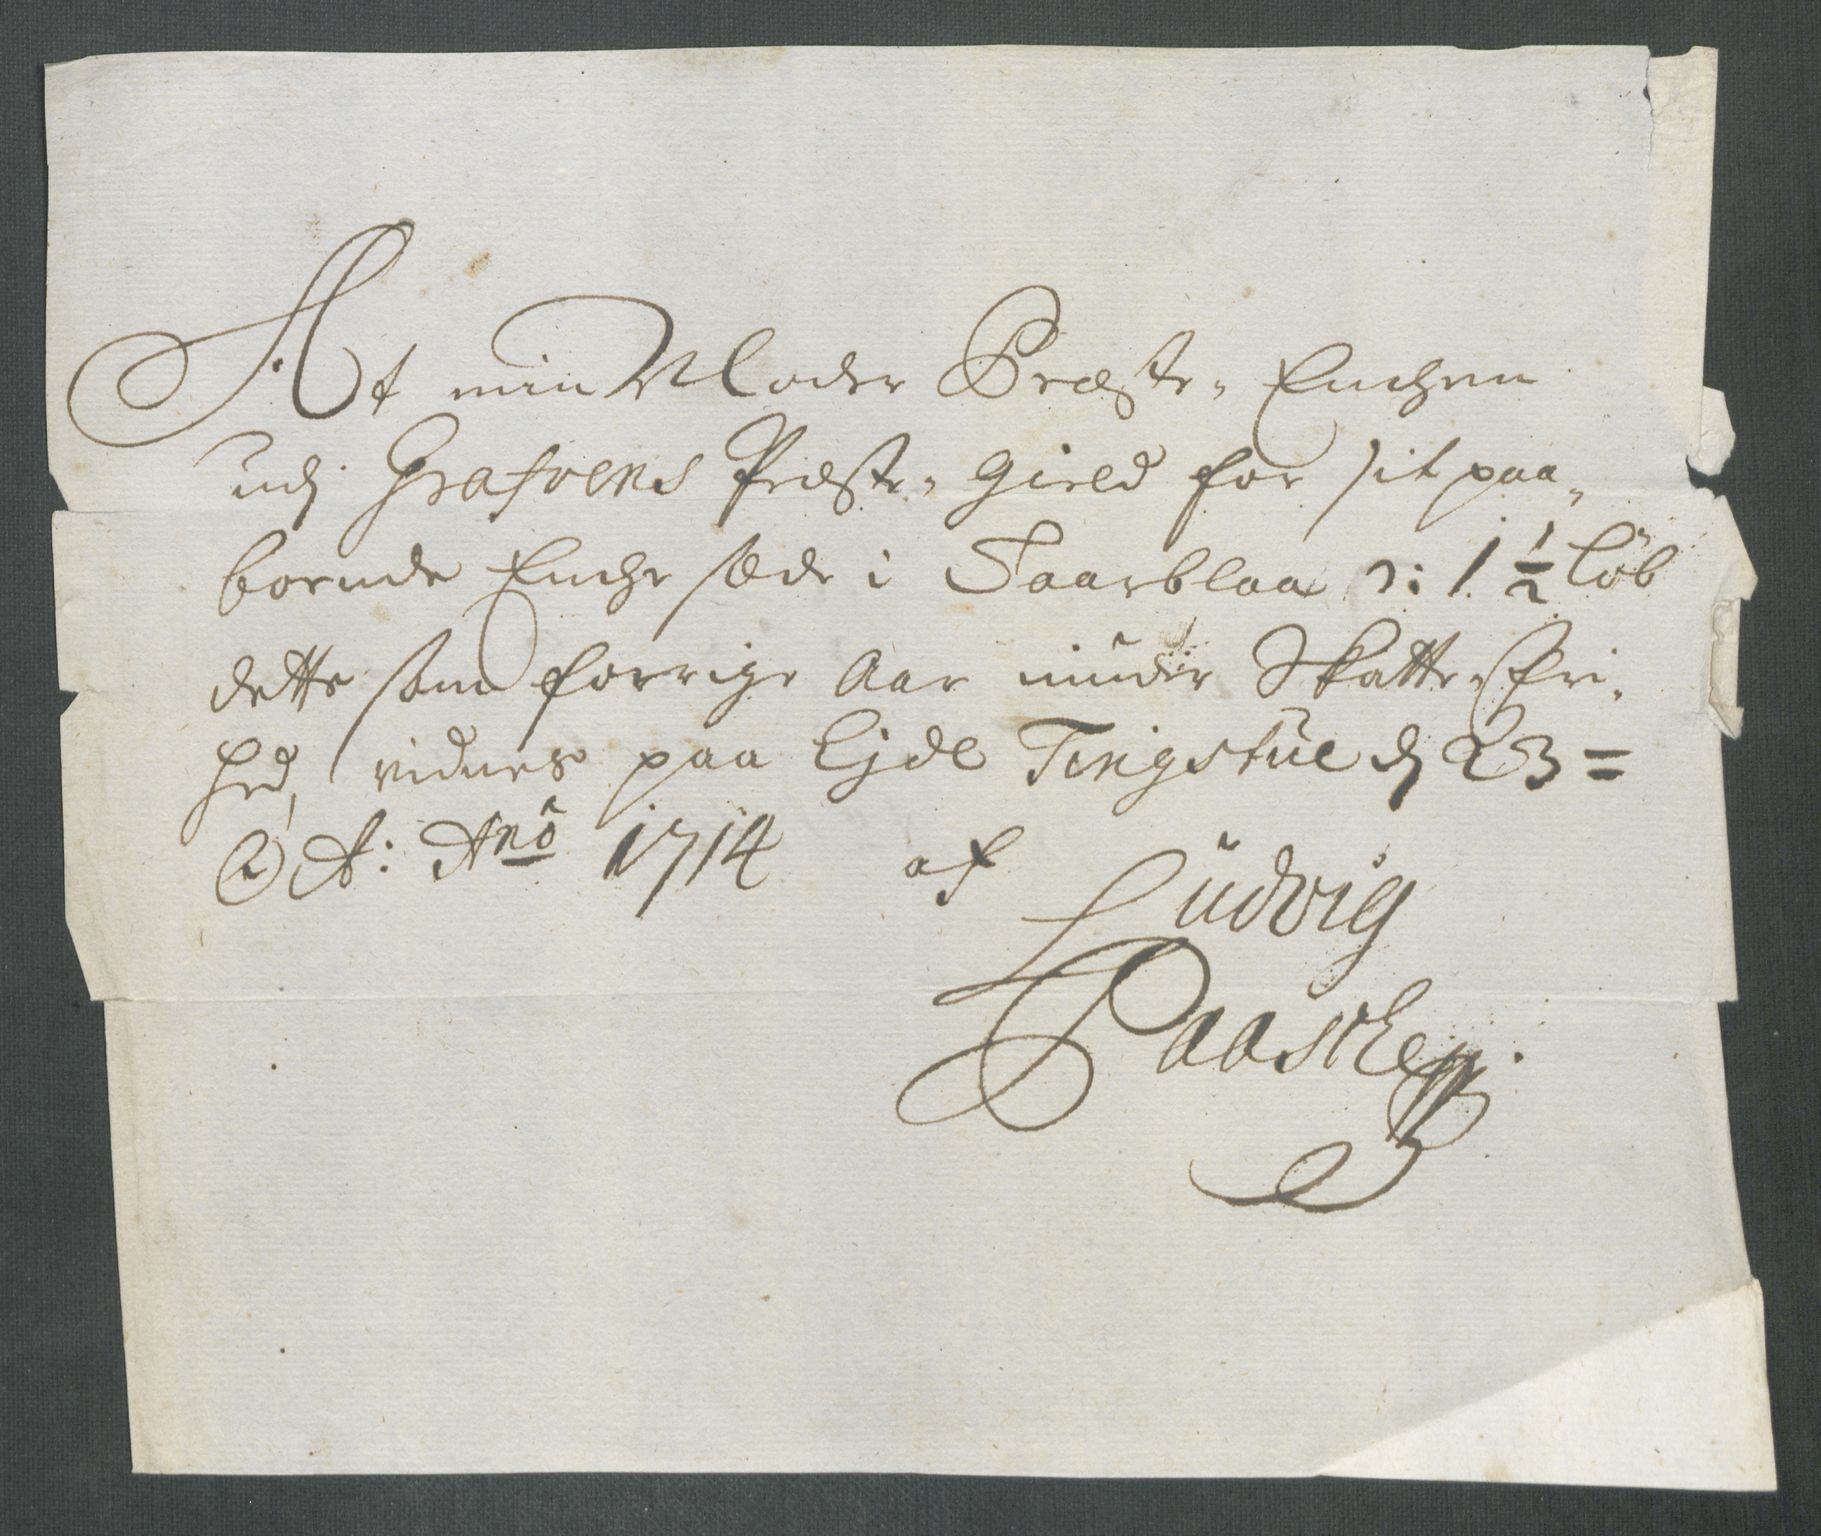 At min Moder Præste-Enchen
udj Grafvens Præste-Gield for sit paa-
boende Enche sæde i Saarblaa ɔ: 1 1/2 Löb
dette som forrige Aar niuder Skatte-Fri-
hed, vidnes paa Ejde Tingstüe dj 23 =
Oct: Anö 1714 af
Lüdvig
Paaske